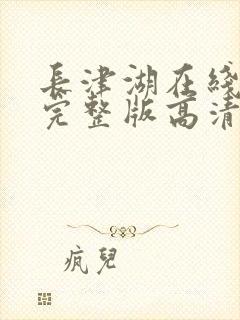 長津湖在綫
完整版高清
瘋兒